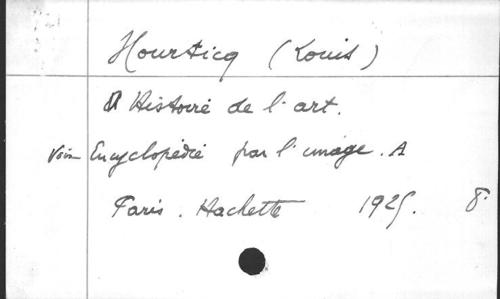 Hourticq (Louis)
Histoire de l'art.
Voir Encyclopédie par l'image. A
Paris. Hachette 1925. 8°